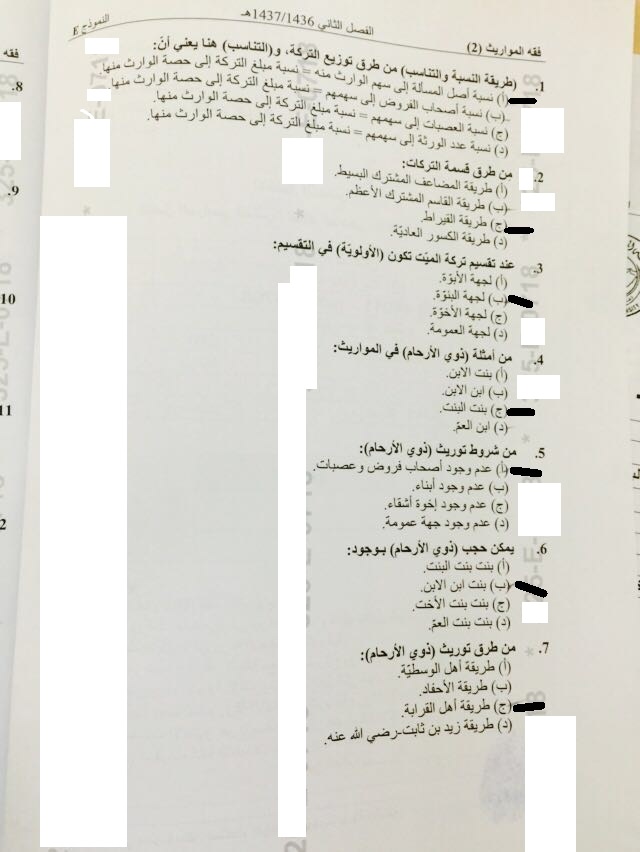 النموذج E
الفصل الثاني 1437/1436هـ
فقه المواريث (2)
1. (طريقة النسبة والتناسب) من طرق توزيع التركة، و(التناسب) هنا يعني أنّ:
(أ) نسبة أصل المسألة إلى سهم الوارث منه = نسبة مبلغ التركة إلى حصة الوارث منها.
(ب) نسبة أصحاب الفروض إلى سهمهم = نسبة مبلغ التركة إلى حصة الوارث منها.
(ج) نسبة العصبات إلى سهمهم = نسبة مبلغ التركة إلى حصة الوارث منها.
(د) نسبة عدد الورثة إلى سهمهم = نسبة مبلغ التركة إلى حصة الوارث منها.
2. من طرق قسمة التركات:
(أ) طريقة المضاعف المشترك البسيط.
(ب) طريقة القاسم المشترك الأعظم.
(ج) طريقة القيراط.
(د) طريقة الكسور العاديّة.
3. عند تقسيم تركة الميّت تكون (الأولويّة) في التقسيم:
(أ) لجهة الأبوّة.
(ب) لجهة البنوّة.
(ج) لجهة الأخوّة.
(د) لجهة العمومة.
4. من أمثلة (ذوي الأرحام) في المواريث:
(أ) بنت الابن.
(ب) ابن الابن.
(ج) بنت البنت.
(د) ابن العمّ.
5. من شروط توريث (ذوي الأرحام):
(أ) عدم وجود أصحاب فروض وعصبات.
(ب) عدم وجود أبناء.
(ج) عدم وجود إخوة أشقاء.
(د) عدم وجود جهة عمومة.
6. يمكن حجب (ذوي الأرحام) بـوجود:
(أ) بنت بنت البنت.
(ب) بنت ابن الابن.
(ج) بنت بنت الأخت.
(د) بنت بنت العمّ.
7. من طرق توريث (ذوي الأرحام):
(أ) طريقة أهل الوسطيّة.
(ب) طريقة الأحفاد.
(ج) طريقة أهل القرابة.
(د) طريقة زيد بن ثابت-رضي الله عنه.
فقه
8.
9.
10
11
2